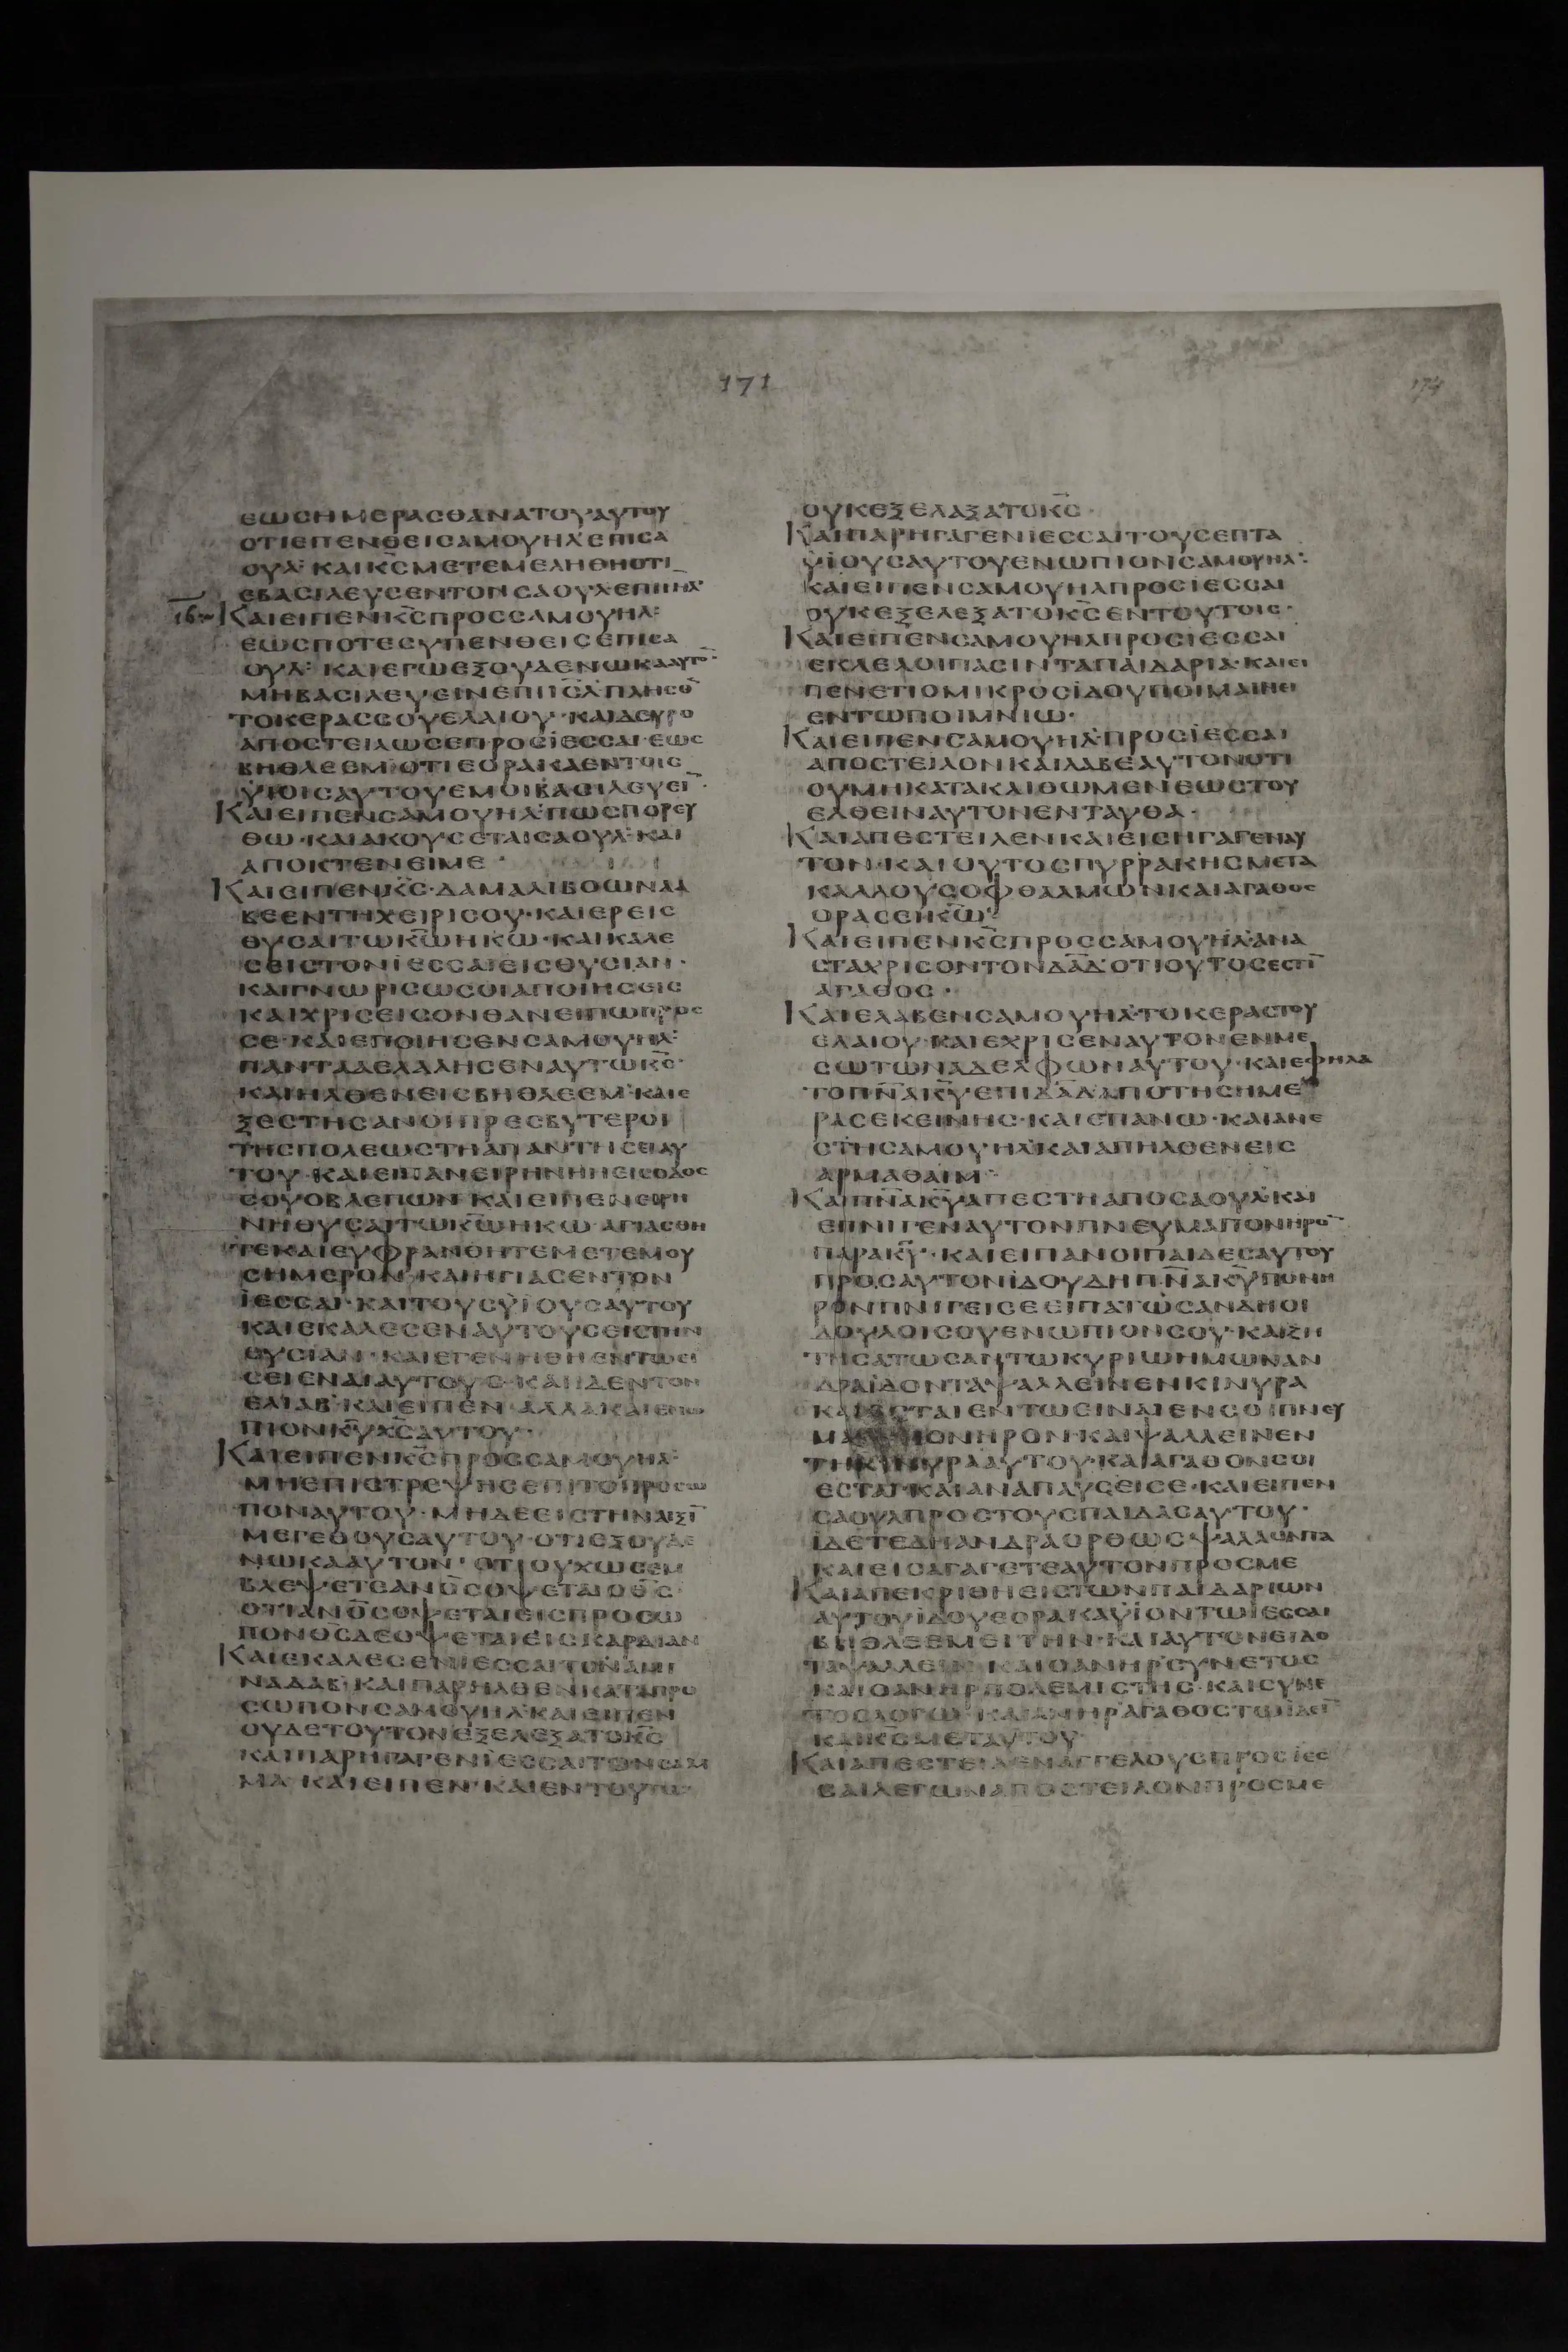 171
174
ΕΩΣΗΜΕΡΑΣΘΑΝΑΤΟΥΑΥΤΟΥ
ΟΤΙΕΠΕΝΘΕΙΣΑΜΟΥΗΛΕΠΙΣΑ
ΟΥΛ· ΚΑΙΚ̅Σ̅ΜΕΤΕΜΕΛΗΘΗΟΤΙ
ΕΒΑΣΙΛΕΥΣΕΝΤΟΝΣΑΟΥΛΕΠΙΙΗΛ
16 ΚΑΙΕΙΠΕΝΚ̅Σ̅ΠΡΟΣΣΑΜΟΥΗΛ·
ΕΩΣΠΟΤΕΣΥΠΕΝΘΕΙΣΕΠΙΣΑ
ΟΥΛ· ΚΑΙΕΓΩΕΞΟΥΔΕΝΩΚΑΑΥΤΟ̅
ΜΗΒΑΣΙΛΕΥΕΙΝΕΠΙΙ̅Σ̅Λ̅·ΠΛΗΣΟ̅
ΤΟΚΕΡΑΣΣΟΥΕΛΑΙΟΥ·ΚΑΙΔΕΥΡΟ
ΑΠΟΣΤΕΙΛΩΣΕΠΡΟΣΪΕΣΣΑΙ·ΕΩΣ
ΒΗΘΛΕΕΜ·ΟΤΙΕΟΡΑΚΑΕΝΤΟΙΣ
ΫΙΟΙΣΑΥΤΟΥΕΜΟΙΒΑΣΙΛΕΥΕΙ̅·
ΚΑΙΕΙΠΕΝΣΑΜΟΥΗΛ·ΠΩΣΠΟΡΕΥ
ΘΩ·ΚΑΙΑΚΟΥΣΕΤΑΙΣΑΟΥΛ·ΚΑΙ
ΑΠΟΚΤΕΝΕΙΜΕ·
ΚΑΙΕΙΠΕΝΚ̅Σ̅·ΔΑΜΑΛΙΒΟΩΝΛΑ
ΒΕΕΝΤΗΧΕΙΡΙΣΟΥ·ΚΑΙΕΡΕΙΣ
ΘΥΣΑΙΤΩΚ̅Ω̅ΗΚΩ·ΚΑΙΚΑΛΕ
ΣΕΙΣΤΟΝΪΕΣΣΑΙΕΙΣΘΥΣΙΑΝ·
ΚΑΙΓΝΩΡΙΣΩΣΟΙΑΠΟΙΗΣΕΙΣ
ΚΑΙΧΡΙΣΕΙΣΟΝΕΑΝΕΙΠΩΠΡΟΣ
ΣΕ·ΚΑΙΕΠΟΙΗΣΕΝΣΑΜΟΥΗΛ·
ΠΑΝΤΑΑΕΛΑΛΗΣΕΝΑΥΤΩΚ̅Σ̅·
ΚΑΙΗΛΘΕΝΕΙΣΒΗΘΛΕΕΜ·ΚΑΙΕ
ΞΕΣΤΗΣΑΝΟΙΠΡΕΣΒΥΤΕΡΟΙ
ΤΗΣΠΟΛΕΩΣΤΗΑΠΑΝΤΗΣΕΙΑΥ
ΤΟΥ·ΚΑΙΕΙΠΑΝΕΙΡΗΝΗΗΕΙΣΟΔΟΣ
ΣΟΥΟΒΛΕΠΩΝ·ΚΑΙΕΙΠΕΝΕΙΡΗ
ΝΗΘΥΣΑΙΤΩΚ̅Ω̅ΗΚΩ·ΑΓΙΑΣΘΗ
ΤΕΚΑΙΕΥΦΡΑΝΘΗΤΕΜΕΤΕΜΟΥ
ΣΗΜΕΡΟΝ·ΚΑΙΗΓΙΑΣΕΝΤΟΝ
ΪΕΣΣΑΙ·ΚΑΙΤΟΥΣΫΙΟΥΣΑΥΤΟΥ
ΚΑΙΕΚΑΛΕΣΕΝΑΥΤΟΥΣΕΙΣΤΗΝ
ΘΥΣΙΑΝ·ΚΑΙΕΓΕΝΗΘΗΕΝΤΩΕΙ
ΣΕΙΕΝΑΙΑΥΤΟΥΣ·ΚΑΙΙΔΕΝΤΟΝ
ΕΛΙΑΒ·ΚΑΙΕΙΠΕΝ·ΑΛΛΑΚΑΙΕΝΩ
ΠΙΟΝΚ̅Υ̅Χ̅Σ̅ΑΥΤΟΥ·
ΚΑΙΕΙΠΕΝΚ̅Σ̅ΠΡΟΣΣΑΜΟΥΗΛ·
ΜΗΕΠΙΣΤΡΕΨΗΣΕΠΙΤΟΠΡΟΣΩ
ΠΟΝΑΥΤΟΥ·ΜΗΔΕΕΙΣΤΗΝΑΞΙ̅
ΜΕΓΕΘΟΥΣΑΥΤΟΥ·ΟΤΙΕΞΟΥΔΕ
ΝΩΚΑΑΥΤΟΝ·ΟΤΙΟΥΧΩΣΕΜ
ΒΛΕΨΕΤΕΑΝΟ̅Σ̅ΟΨΕΤΑΙΟΘ̅Σ̅
ΟΤΙΑΝΟ̅Σ̅ΟΨΕΤΑΙΕΙΣΠΡΟΣΩ
ΠΟΝΟΣΔΕΟΨΕΤΑΙΕΙΣΚΑΡΔΙΑΝ
ΚΑΙΕΚΑΛΕΣΕΝΙΕΣΣΑΙΤΟΝΑΜΙ
ΝΑΔΑΒ·ΚΑΙΠΑΡΗΛΘΕΝΚΑΤΑΠΡΟ
ΣΩΠΟΝΣΑΜΟΥΗΛ·ΚΑΙΕΙΠΕΝ
ΟΥΔΕΤΟΥΤΟΝΕΞΕΛΕΞΑΤΟΚ̅Σ̅
ΚΑΙΠΑΡΗΓΑΓΕΝΪΕΣΣΑΙΤΟΝΣΑΜ
ΜΑ·ΚΑΙΕΙΠΕΝ·ΚΑΙΕΝΤΟΥΤΩ
ΟΥΚΕΞΕΛΑΞΑΤΟΚ̅Σ̅·
ΚΑΙΠΑΡΗΓΑΓΕΝΙΕΣΣΑΙΤΟΥΣΕΠΤΑ
ΫΙΟΥΣΑΥΤΟΥΕΝΩΠΙΟΝΣΑΜΟΥΗΛ·
ΚΑΙΕΙΠΕΝΣΑΜΟΥΗΛΠΡΟΣΙΕΣΣΑΙ
ΟΥΚΕΞΕΛΕΞΑΤΟΚ̅Σ̅ΕΝΤΟΥΤΟΙΣ·
ΚΑΙΕΙΠΕΝΣΑΜΟΥΗΛΠΡΟΣΙΕΣΣΑΙ
ΕΚΛΕΛΟΙΠΑΣΙΝΤΑΠΑΙΔΑΡΙΑ·ΚΑΙΕΙ
ΠΕΝΕΤΙΟΜΙΚΡΟΣΪΔΟΥΠΟΙΜΑΙΝΕΙ
ΕΝΤΩΠΟΙΜΝΙΩ·
ΚΑΙΕΙΠΕΝΣΑΜΟΥΗΛ·ΠΡΟΣΪΕΣΣΑΙ
ΑΠΟΣΤΕΙΛΟΝΚΑΙΛΑΒΕΑΥΤΟΝΟΤΙ
ΟΥΜΗΚΑΤΑΚΛΙΘΩΜΕΝΕΩΣΤΟΥ
ΕΛΘΕΙΝΑΥΤΟΝΕΝΤΑΥΘΑ·
ΚΑΙΑΠΕΣΤΕΙΛΕΝΚΑΙΕΙΣΗΓΑΓΕΝΑΥ
ΤΟΝ·ΚΑΙΟΥΤΟΣΠΥΡΡΑΚΗΣΜΕΤΑ
ΚΑΛΛΟΥΣΟΦΘΑΛΜΩΝΚΑΙΑΓΑΘΟΣ
ΟΡΑΣΕΙΚ̅Ω̅·
ΚΑΙΕΙΠΕΝΚ̅Σ̅ΠΡΟΣΣΑΜΟΥΗΛ·ΑΝΑ
ΣΤΑΧΡΙΣΟΝΤΟΝΔ̅Α̅Δ̅·ΟΤΙΟΥΤΟΣΕΣΤΙ̅
ΑΓΑΘΟΣ·
ΚΑΙΕΛΑΒΕΝΣΑΜΟΥΗΛ·ΤΟΚΕΡΑΣΤΟΥ
ΕΛΑΙΟΥ·ΚΑΙΕΧΡΙΣΕΝΑΥΤΟΝΕΝΜΕ
ΣΩΤΩΝΑΔΕΛΦΩΝΑΥΤΟΥ·ΚΑΙΕΦΗΛΑ
ΤΟΠ̅Ν̅Α̅Κ̅Υ̅·ΕΠΙΔ̅Α̅Δ̅ΑΠΟΤΗΣΗΜΕ
ΡΑΣΕΚΕΙΝΗΣ·ΚΑΙΕΠΑΝΩ·ΚΑΙΑΝΕ
ΣΤΗΣΑΜΟΥΗΛ·ΚΑΙΑΠΗΛΘΕΝΕΙΣ
ΑΡΜΑΘΑΙΜ·
ΚΑΙΠ̅Ν̅Α̅Κ̅Υ̅ΑΠΕΣΤΗΑΠΟΣΑΟΥΛ·ΚΑΙ
ΕΠΝΙΓΕΝΑΥΤΟΝΠΝΕΥΜΑΠΟΝΗΡΟ̅
ΠΑΡΑΚ̅Υ̅·ΚΑΙΕΙΠΑΝΟΙΠΑΙΔΕΣΑΥΤΟΥ
ΠΡΟΣΑΥΤΟΝΪΔΟΥΔΗΠ̅Ν̅Α̅Κ̅Υ̅ΠΟΝΗ
ΡΟΝΠΝΙΓΕΙΣΕΕΙΠΑΤΩΣΑΝΔΗΟΙ
ΔΟΥΛΟΙΣΟΥΕΝΩΠΙΟΝΣΟΥ·ΚΑΙΖΗ
ΤΗΣΑΤΩΣΑΝΤΩΚΥΡΙΩΗΜΩΝΑΝ
ΔΡΑΪΔΟΝΤΑΨΑΛΛΕΙΝΕΝΚΙΝΥΡΑ
ΚΑΙΕΣΤΑΙΕΝΤΩΕΙΝΑΙΕΝΣΟΙΠΝΕΥ
ΜΑ ΠΟΝΗΡΟΝ·ΚΑΙΨΑΛΛΕΙΝΕΝ
ΤΗΚΙΝΥΡΑΑΥΤΟΥ·ΚΑΙΑΓΑΘΟΝΣΟΙ
ΕΣΤΑΙ·ΚΑΙΑΝΑΠΑΥΣΕΙΣΕ·ΚΑΙΕΙΠΕΝ
ΣΑΟΥΛΠΡΟΣΤΟΥΣΠΑΙΔΑΣΑΥΤΟΥ·
ΪΔΕΤΕΔΗΑΝΔΡΑΟΡΘΩΣΨΑΛΛΟΝΤΑ
ΚΑΙΕΙΣΑΓΑΓΕΤΕΑΥΤΟΝΠΡΟΣΜΕ
ΚΑΙΑΠΕΚΡΙΘΗΕΙΣΤΩΝΠΑΙΔΑΡΙΩΝ
ΑΥΤΟΥΪΔΟΥΕΟΡΑΚΑΫΙΟΝΤΩΪΕΣΣΑΙ
ΒΗΘΛΕΕΜΕΙΤΗΝ·ΚΑΙΑΥΤΟΝΕΙΔΟ
ΤΑΨΑΛΛΕΙΝ·ΚΑΙΟΑΝΗΡΣΥΝΕΤΟΣ
ΚΑΙΟΑΝΗΡΠΟΛΕΜΙΣΤΗΣ·ΚΑΙΣΥΝΕ
ΤΟΣΛΟΓΩ·ΚΑΙΑΝΗΡΑΓΑΘΟΣΤΩΕΙΔΕΙ
ΚΑΙΚ̅Σ̅ΜΕΤΑΥΤΟΥ
ΚΑΙΑΠΕΣΤΕΙΛΕΝΑΓΓΕΛΟΥΣΠΡΟΣΪΕΣ
ΣΑΙΛΕΓΩΝΑΠΟΣΤΕΙΛΟΝΠΡΟΣΜΕ